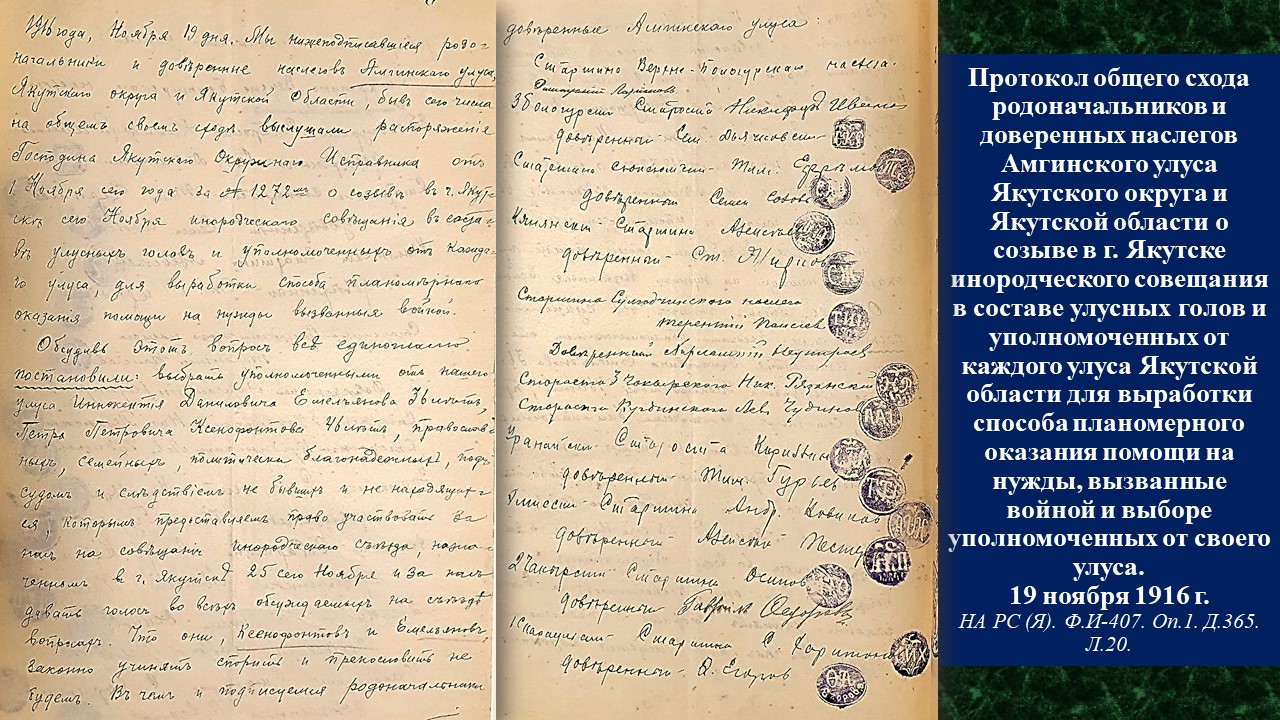 1916 года, Ноября 19 дня. Мы нижеподписавшiеся родо-
начальники и довѣренные наслеговъ Амгинскаго улуса,
Якутскаго округа и Якутской Области, бывъ сего числа
на общемъ своемъ сходѣ выслушали распоряженiе
Господина Якутскаго Окружнаго Исправника отъ
1 Ноября сего года за № 1272 о созывѣ въ г. Якут-
скѣ сего Ноября инородческаго совѣщанiя въ соста-
вѣ улусныхъ головъ и уполномоченныхъ отъ каждо-
го улуса, для выработки способа планомѣрнаго
оказанiя помощи на нужды вызванныя войной.
Обсудивъ этотъ вопросъ всѣ единогласно
постановили: выбрать уполномоченными отъ нашего
улуса Иннокентiя Даниловича Емельянова 36 лѣтъ,
Петра Петровича Ксенофонтова 46 лѣтъ, православ-
ныхъ, семейныхъ, политически благонадежныхъ, подъ
судомъ и слѣдствiемъ не бывшихъ и не находящих-
ся, которымъ предоставляемъ право участвовать за
насъ на совѣщанiи инородческаго съѣзда назна-
ченномъ въ г. Якутскѣ 25 сего Ноября и за насъ
давать голосъ во всѣхъ обсуждаемыхъ на съѣздѣ
вопросахъ. Что они, Ксенофонтовъ и Емельяновъ,
законно учинятъ спорить и прекословить не
будемъ. Въ чемъ и подписуемся родоначальники
довѣренные Амгинскаго улуса:
Старшина наслега.
3 Бологурскiй Староста Никифоръ
довѣренный Сем. Дьячковскiй
Старшина
довѣренный Семенъ
Старшина Алексѣй
довѣренный Ст.
Старшина Сулгачинскаго наслега
Терентiй
Довѣренный
Староста 3 Чакырскаго Ник.
Староста Лев. Чудинов
Староста
довѣренный Тим. Гурьев
Старшина Анд. Новиков
довѣренный Алексѣй
2 Чакырскiй Старшина Осипов
довѣренный Гаврилъ Федоров
Старшина С. Харитонов
довѣренный Егоров
Протокол общего схода
родоначальников и
доверенных наслегов
Амгинского улуса
Якутского округа и
Якутской области о
созыве в г. Якутске
инородческого совещания
в составе улусных голов и
уполномоченных от
каждого улуса Якутской
области для выработки
способа планомерного
оказания помощи на
нужды, вызванные
войной и выборе
уполномоченных от своего
улуса.
19 ноября 1916 г.
НА РС (Я). Ф.И-407. Оп.1. Д.365.
Л.20.